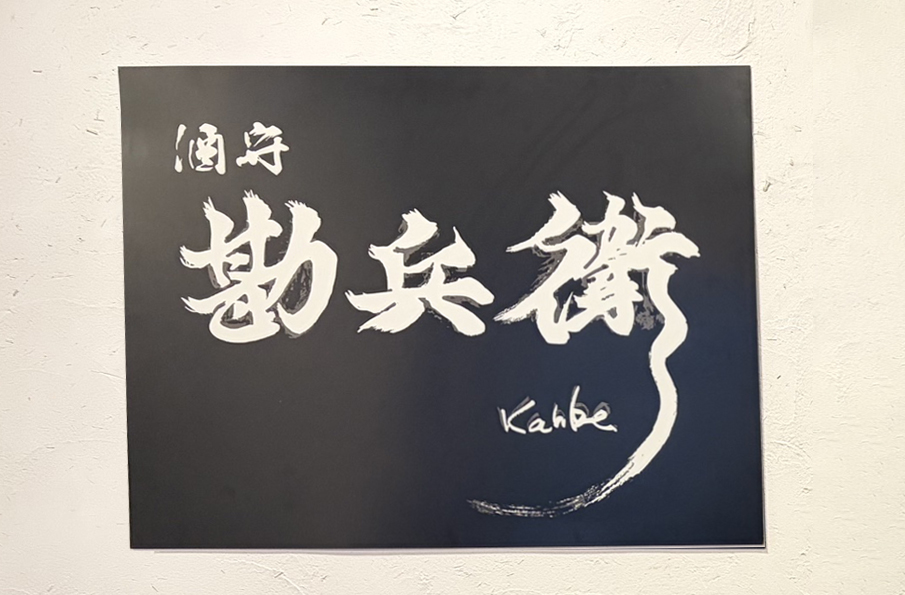 酒守
勘兵衛
Kanbe